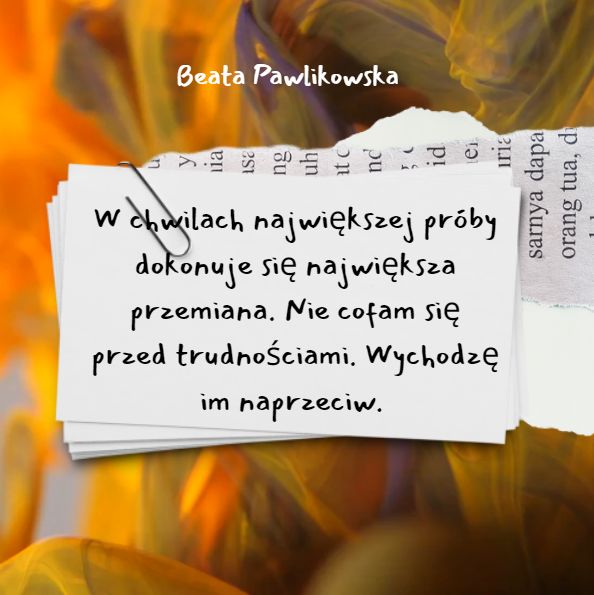 Beata Pawlikowska
W chwilach największej próby
dokonuje się największa
przemiana. Nie cofam się
przed trudnościami. Wychodzę
im naprzeciw.
sarnya dapa
orang tua, di